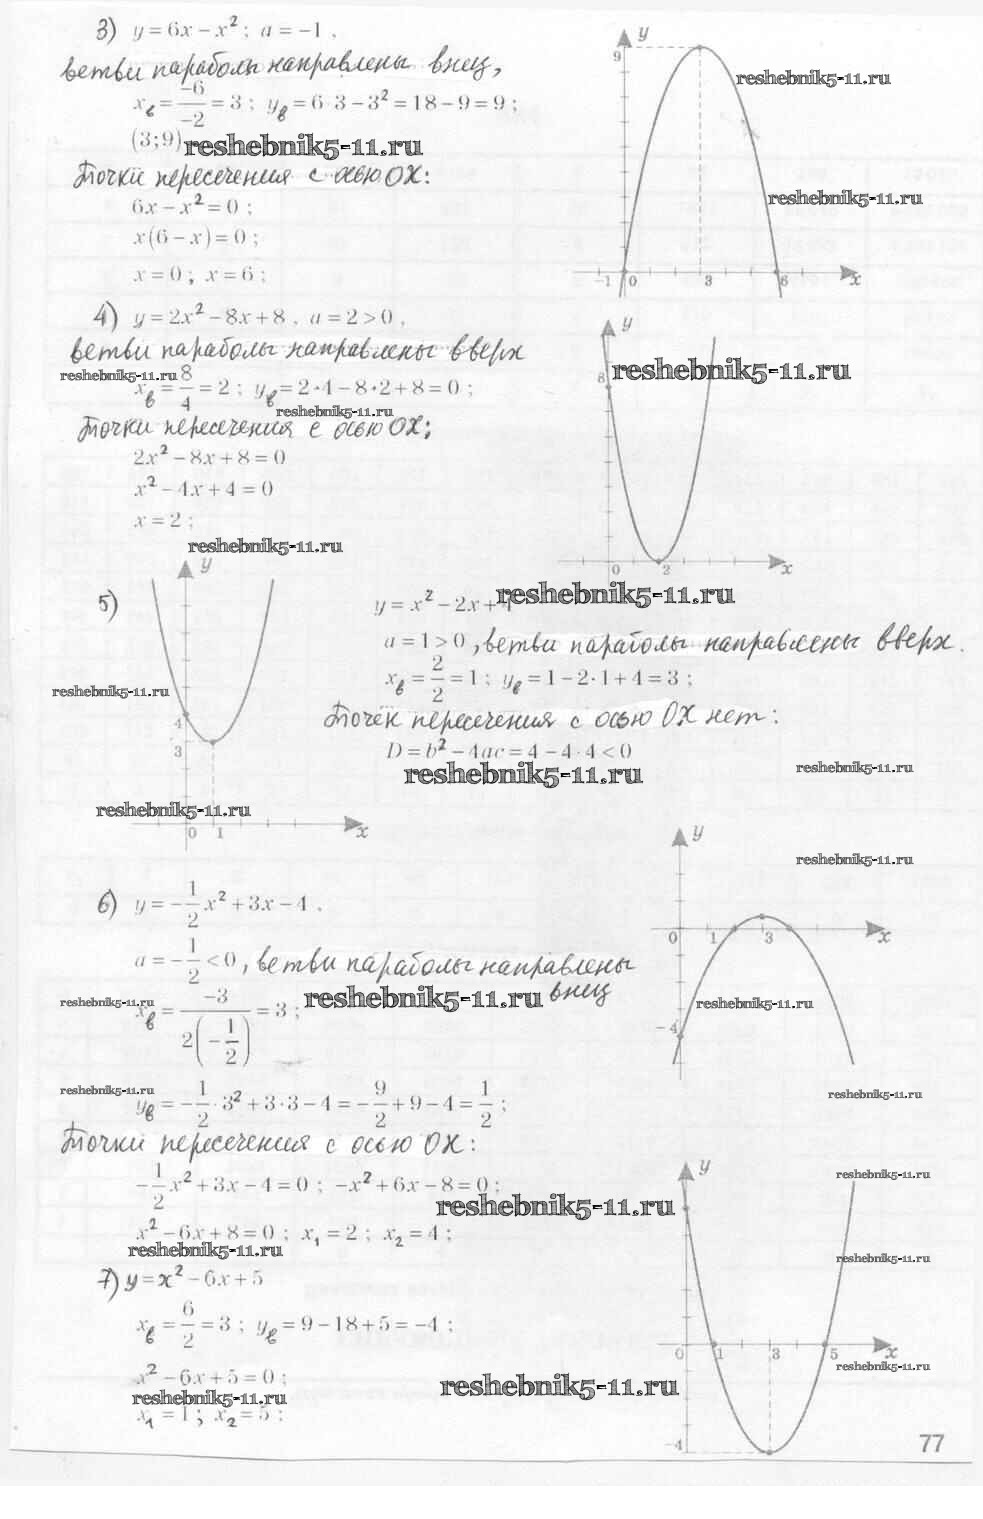 3) y = 6x − x²; a = −1,
ветви параболы направлены вниз,
xв = −6/−2 = 3; yв = 6·3 − 3² = 18 − 9 = 9;
(3;9) reshebnik5-11.ru
Точки пересечения с осью OX:
6x − x² = 0;
x(6 − x) = 0;
x = 0; x = 6;
y
9
reshebnik5-11.ru
reshebnik5-11.ru
−1 0 3 6 x
4) y = 2x² − 8x + 8, a = 2 > 0,
ветви параболы направлены вверх
reshebnik5-11.ru
xв = 8/4 = 2; yв = 2·4 − 8·2 + 8 = 0;
reshebnik5-11.ru
Точки пересечения с осью OX:
2x² − 8x + 8 = 0
x² − 4x + 4 = 0
x = 2;
reshebnik5-11.ru
y
8 reshebnik5-11.ru
0 2 x
reshebnik5-11.ru
5)
y
reshebnik5-11.ru
4
3
reshebnik5-11.ru
0 1 x
y = x² − 2x + 4
a = 1 > 0, ветви параболы направлены вверх.
xв = 2/2 = 1; yв = 1 − 2·1 + 4 = 3;
Точек пересечения с осью OX нет:
D = b² − 4ac = 4 − 4·4 < 0
reshebnik5-11.ru
reshebnik5-11.ru
6) y = −1/2 x² + 3x − 4,
a = −1/2 < 0, ветви параболы направлены
вниз
reshebnik5-11.ru
reshebnik5-11.ru
xв = −3/2(−1/2) = 3;
reshebnik5-11.ru
yв = −1/2·3² + 3·3 − 4 = −9/2 + 9 − 4 = 1/2;
Точки пересечения с осью OX:
−1/2 x² + 3x − 4 = 0; −x² + 6x − 8 = 0;
reshebnik5-11.ru
x² − 6x + 8 = 0; x₁ = 2; x₂ = 4;
reshebnik5-11.ru
y
reshebnik5-11.ru
0 1 3 x
reshebnik5-11.ru
−4
reshebnik5-11.ru
7) y = x² − 6x + 5
xв = 6/2 = 3; yв = 9 − 18 + 5 = −4;
x² − 6x + 5 = 0;
reshebnik5-11.ru
x₁ = 1; x₂ = 5;
reshebnik5-11.ru
y
reshebnik5-11.ru
reshebnik5-11.ru
0 1 3 5 x
reshebnik5-11.ru
−4
77